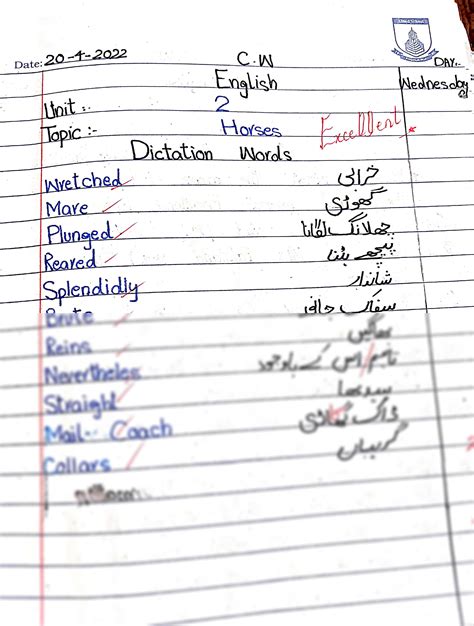 Date: 20-4-2022 C.W DAY:-
English Wednesday
Unit :- 2
Topic :- Horses Excellent
Dictation Words
Wretched خرابی
Mare گھوڑی
Plunged چھلانگ لگانا
Reared پیچھے ہٹنا
Splendidly شاندار
Brute
Reins
Nevertheless تاہم اس کے باوجود
Straight سیدھا
Mail-Coach ڈاک گاڑی
Collars گریبان